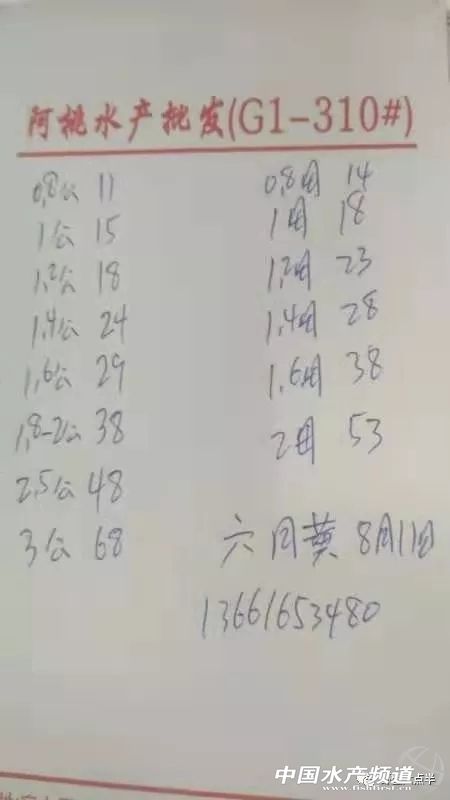 阿桃水产批发(G1-310#)
0.8公 11 0.8母 14
1公 15 1母 18
1.2公 18 1.2母 23
1.4公 24 1.4母 28
1.6公 29 1.6母 38
1.8-2公 38 2母 53
2.5公 48
3公 68 六月黄 8月11日
13661653480
点半
中国水产频道
www.fishfirst.cn